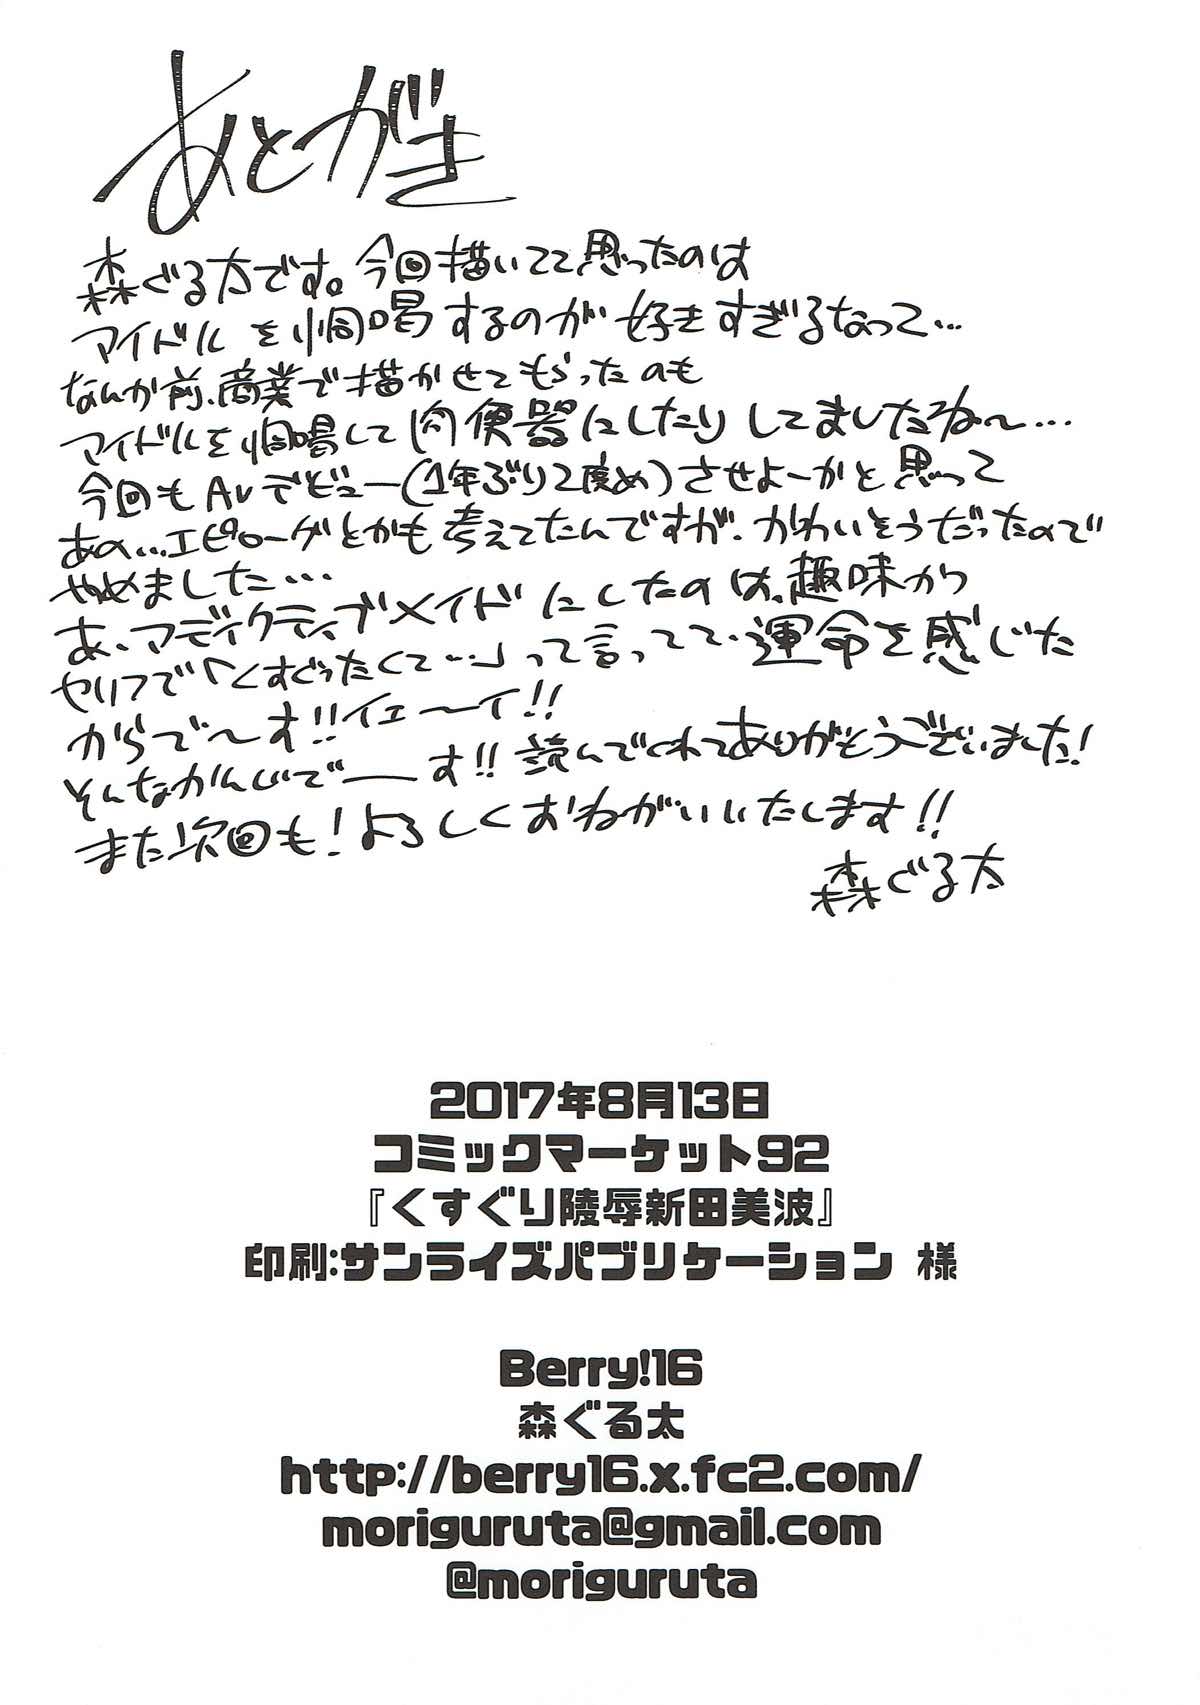 あとがき
森ぐる太です。今回描いてて思ったのは
アイドルを恫喝するのが好きすぎるなって…
なんか前、商業で描かせてもらったのも
アイドルを恫喝して肉便器にしたりしてましたね〜…
今回もAVデビュー(1年ぶり2度め)させよーかと思って
あの…エピローグとかも考えてたんですが、かわいそうだったので
やめました…
あ、アディクティブメイドにしたのは、趣味から
セリフで「くすぐったくて…」って言ってて、運命を感じた
からで〜す!!イエ〜イ!!
そんなかんじで―す!!読んでくれてありがとうございました!
また次回も!よろしくおねがいいたします!!
森ぐる太
2017年8月13日
コミックマーケット92
『くすぐり陵辱新田美波』
印刷:サンライズパブリケーション 様
Berry!16
森ぐる太
http://berry16.x.fc2.com/
moriguruta@gmail.com
@moriguruta